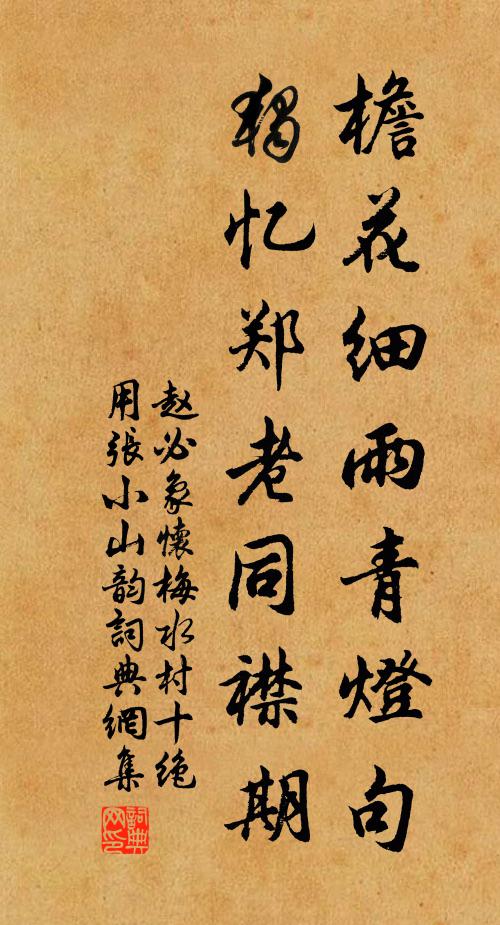 檐花细雨青燈句
独忆郑老同襟期
赵必象懷梅水村十绝
用張小山韵詞典網集
詞典网印